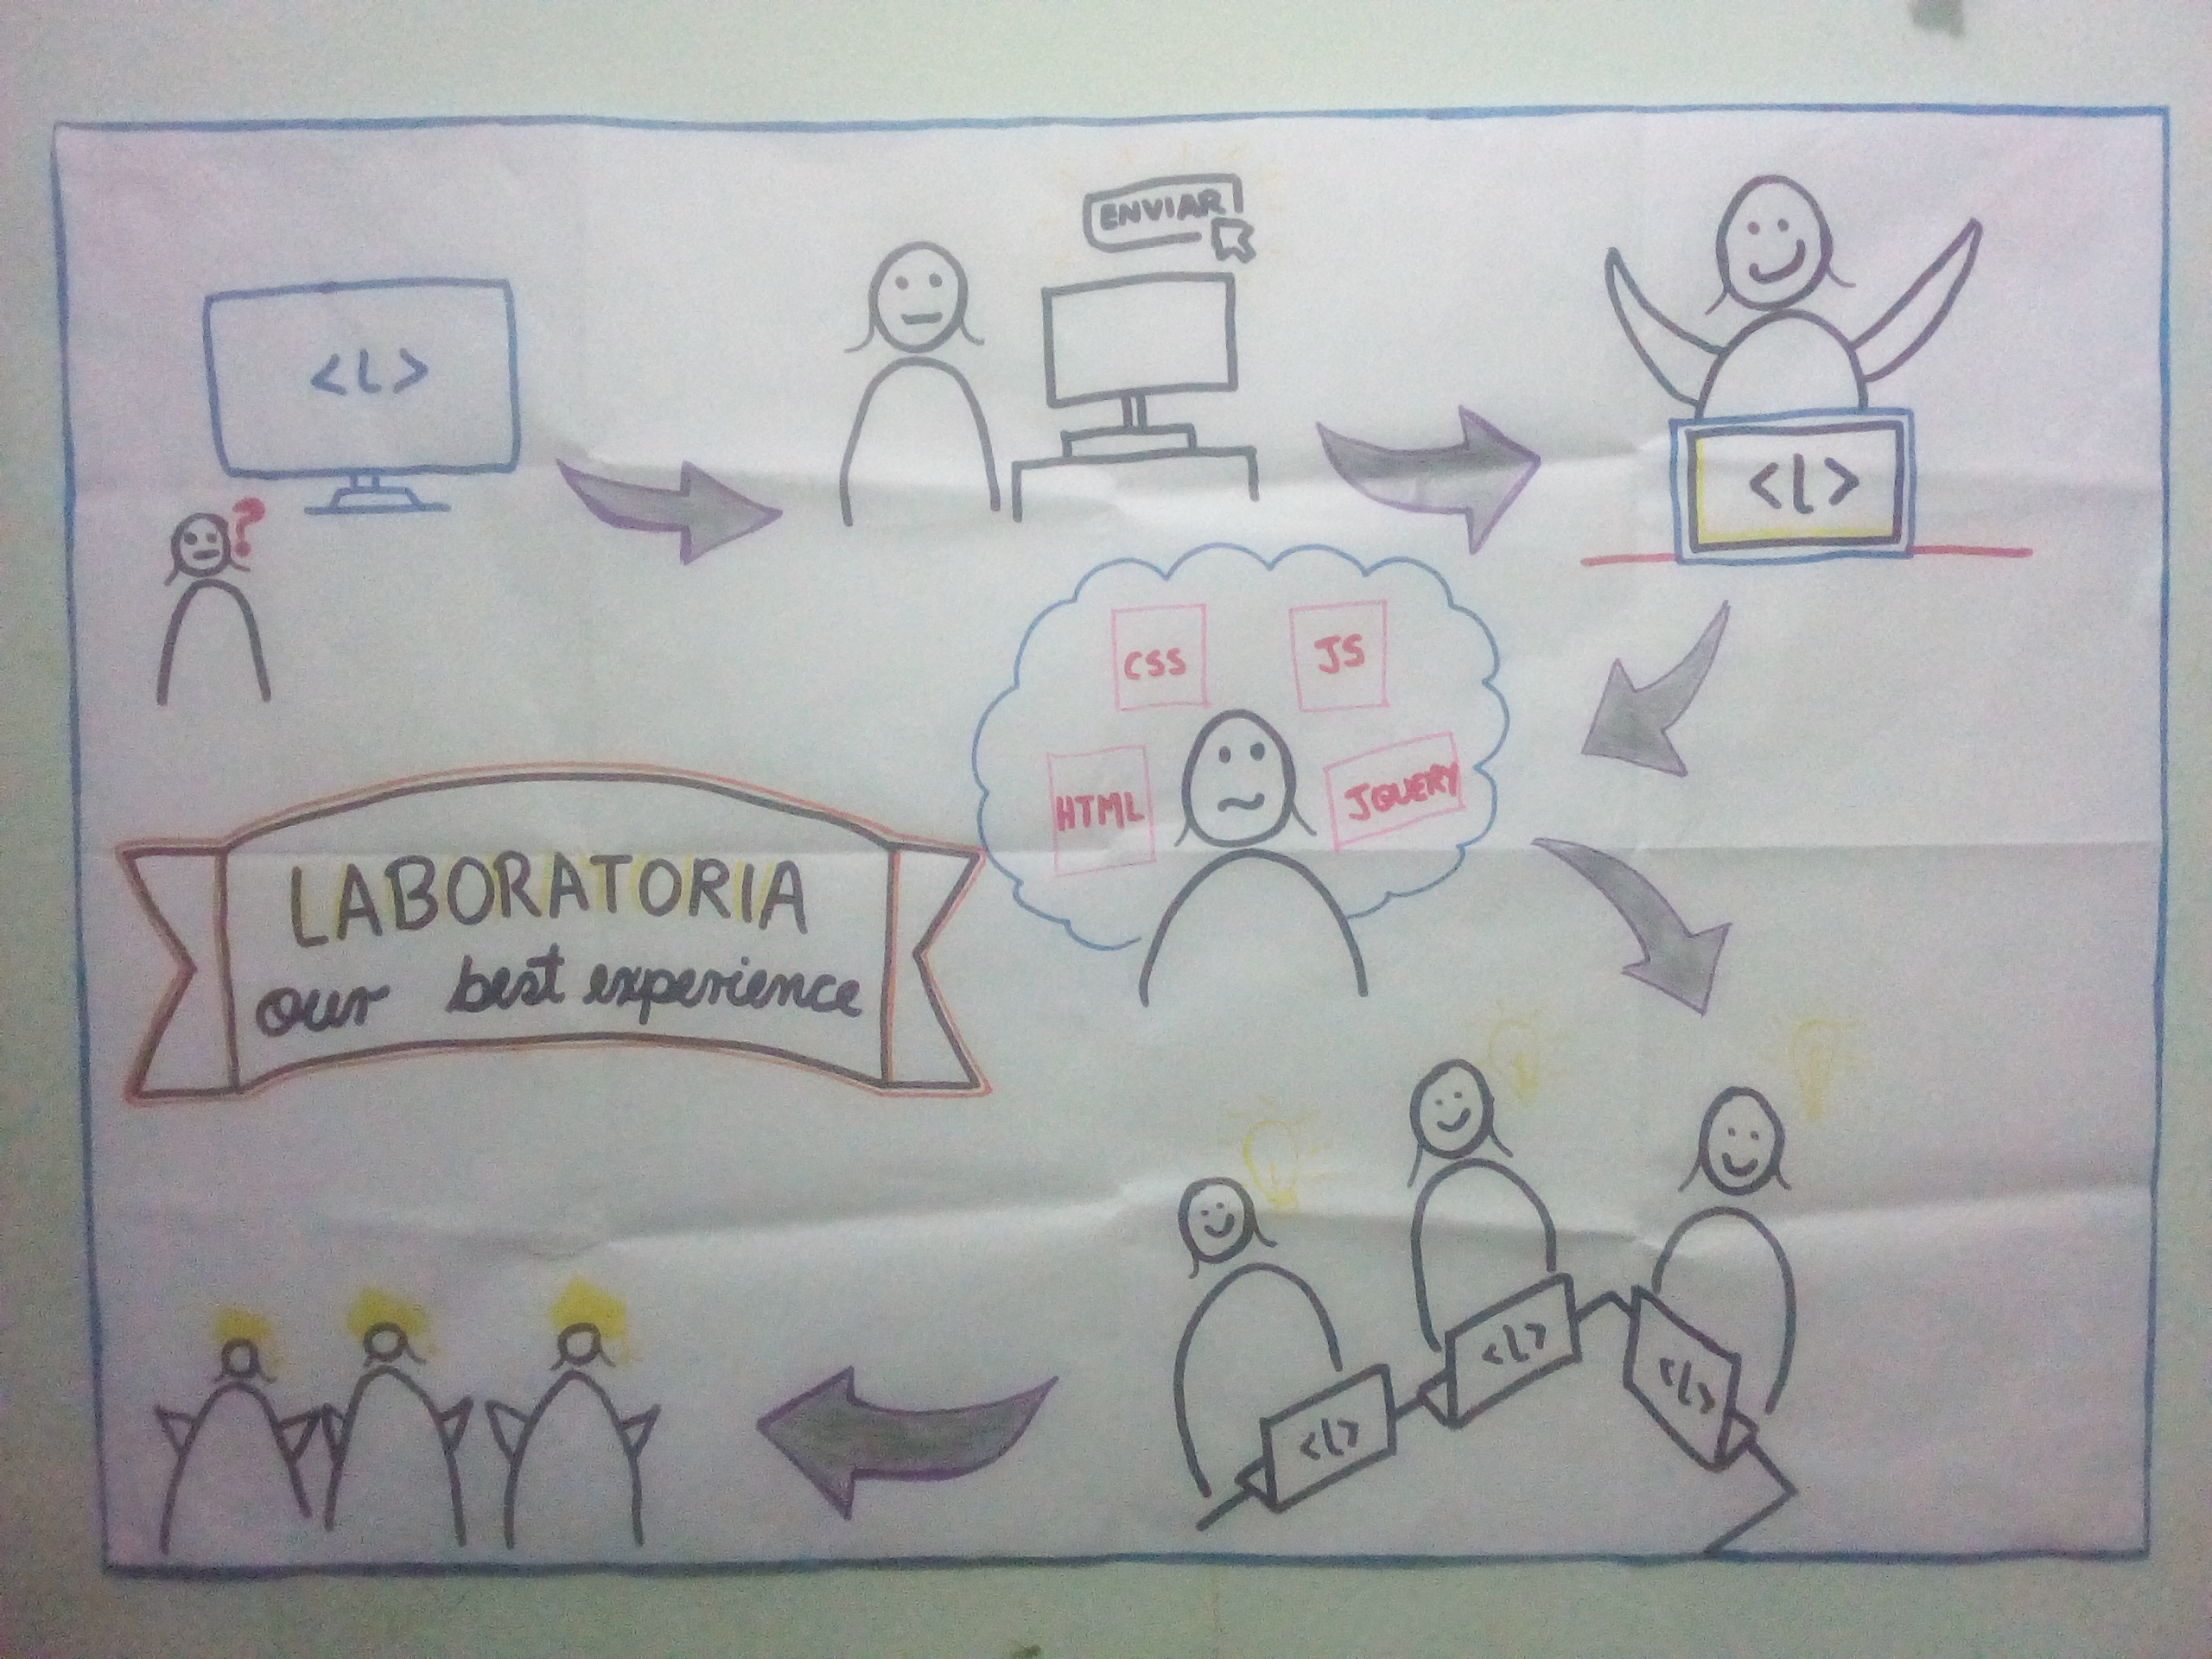 <L>
?
ENVIAR
<L>
CSS
JS
HTML
JQUERY
LABORATORIA
our best experience
<L>
<L>
<L>